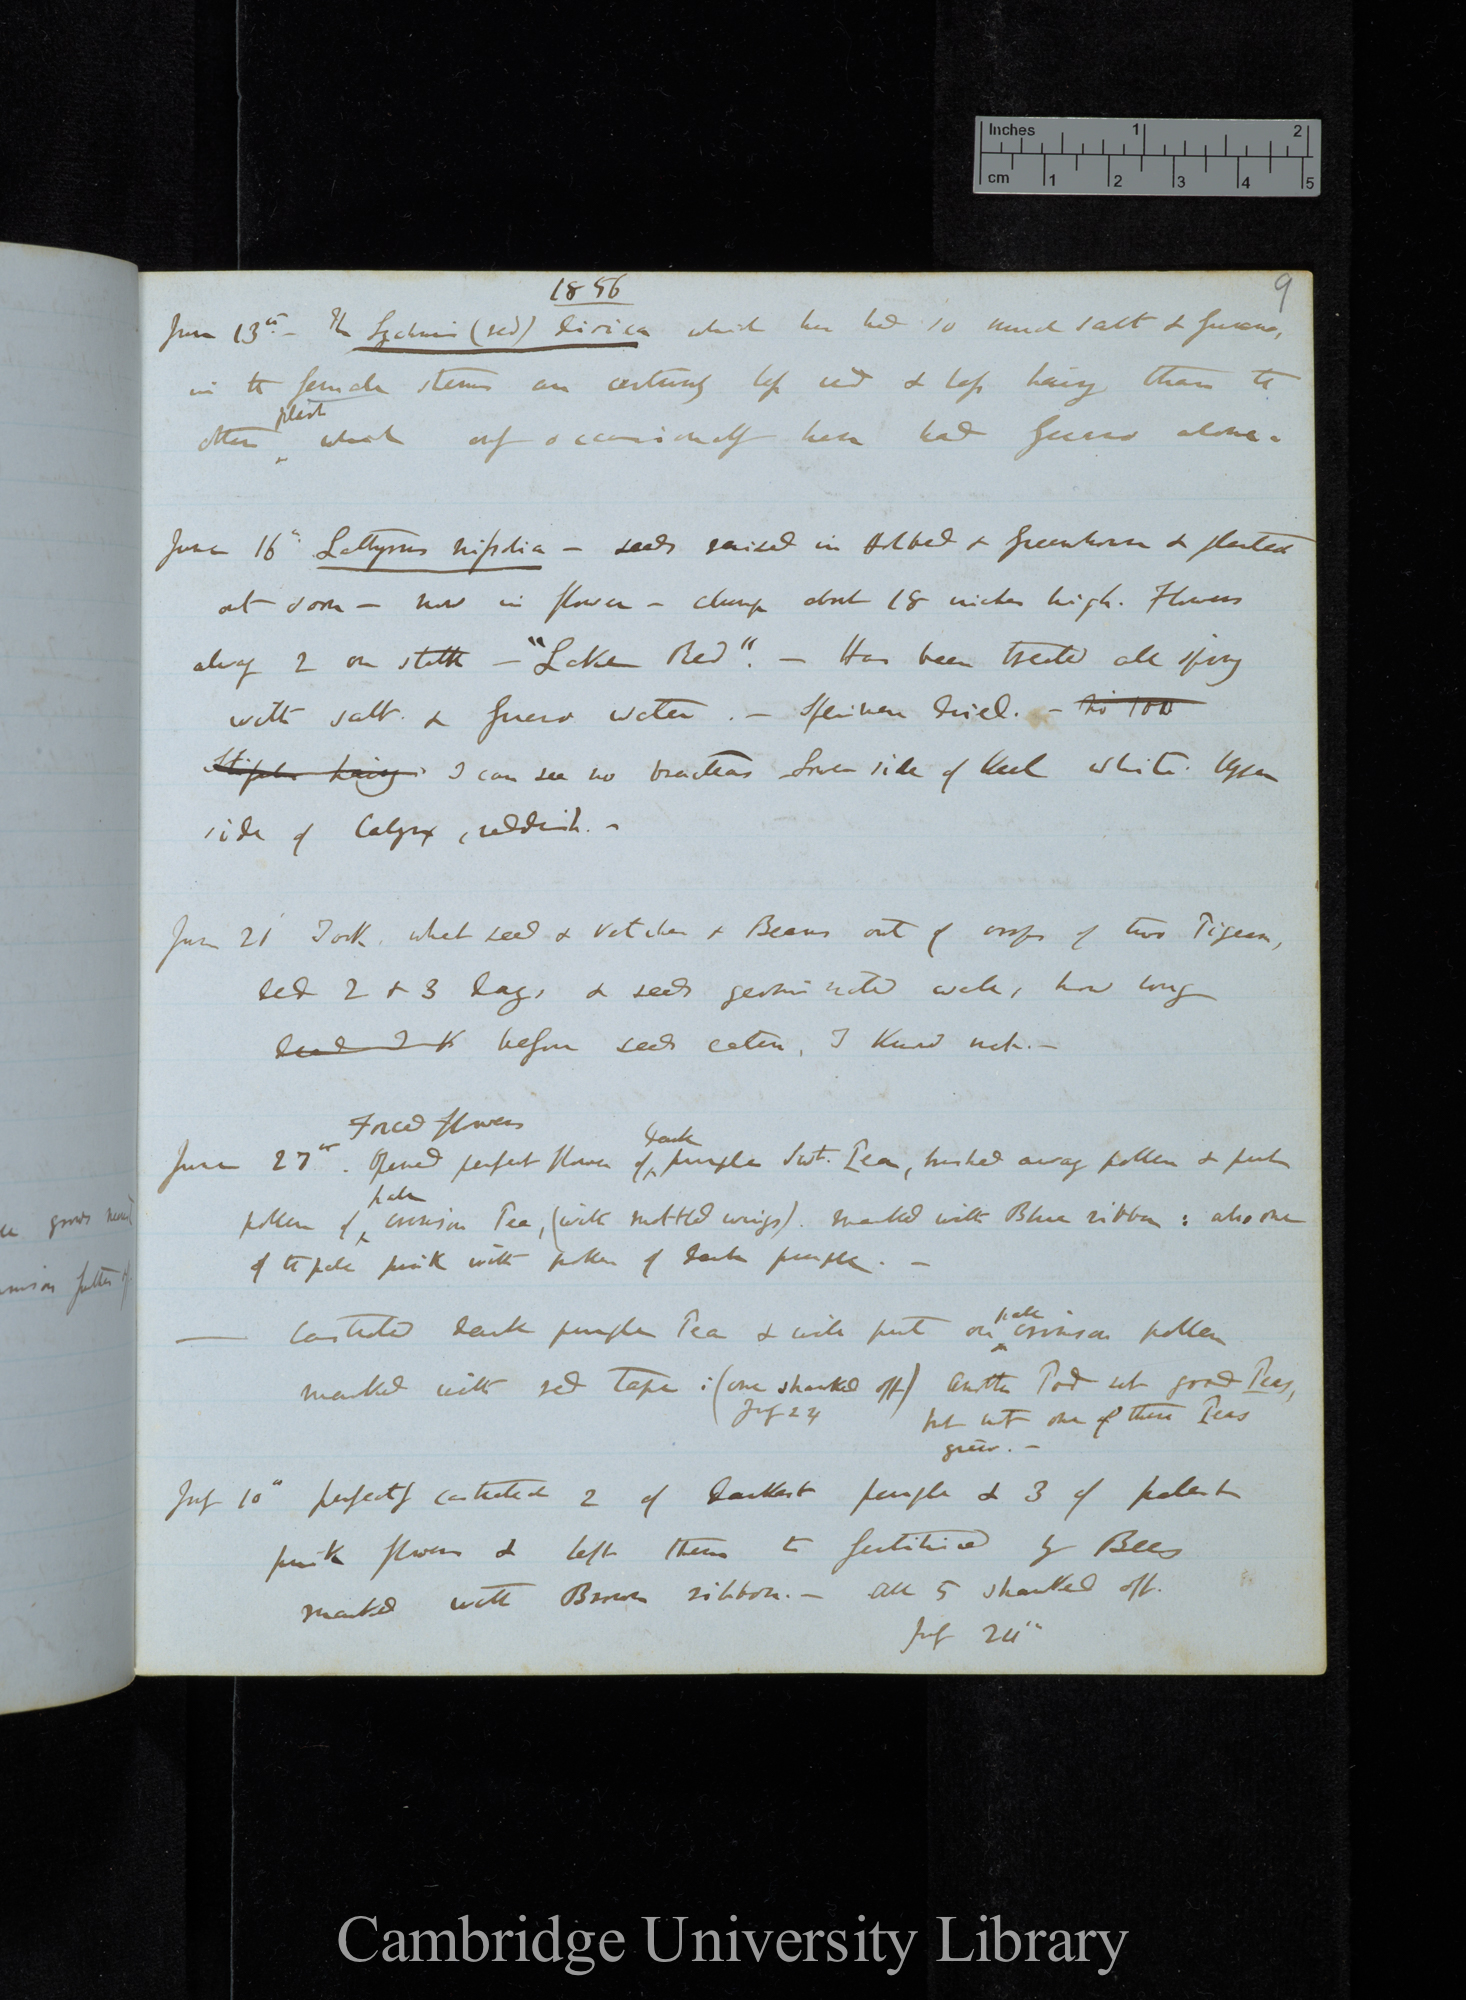 Inches 1 2
cm 1 2 3 4 5
1856
9
June 13th. — The Lychnis (red) dioica which has had so much salt & Guano,
in the female stems are certainly less red & less hairy than the
other plant which only occasionally have had Guano alone.
June 16th Lathyrus nissolia — seeds raised in Hotbed & Greenhouse & planted
out soon — now in flower — clump about 18 inches high. Flowers
always 2 on stalk — "Lake Red". — Has been treated all spring
with salt & Guano water. — Specimen dried. — no
Stipules hairy I can see no bracteas Lower side of Keel white. Upper
side of Calyx, reddish. —
June 21 Took wheat seed & Vetches & Beans out of crops of two Pigeons,
dead 2 & 3 days & seeds germinated well, how long
before seeds eaten, I know not. —
Forced flowers
June 27th. Opened perfect flower of dark purple Swt. Pea, brushed away pollen & put
pollen of pale crimson Pea, (with mottled wings). marked with Blue ribbon: also one
of the pale pink with pollen of dark purple. —
— Castrated dark purple Pea & will put on pale crimson pollen
marked with red tape: (one shanked off) Another Pod set good Peas,
July 24
but not one of these Peas
grew. —
July 10th perfectly castrated 2 of darkest purple & 3 of palest
pink flowers & left them to fertilised by Bees
marked with Brown ribbon. — All 5 shanked off.
July 24th
grows nearest
Cambridge University Library